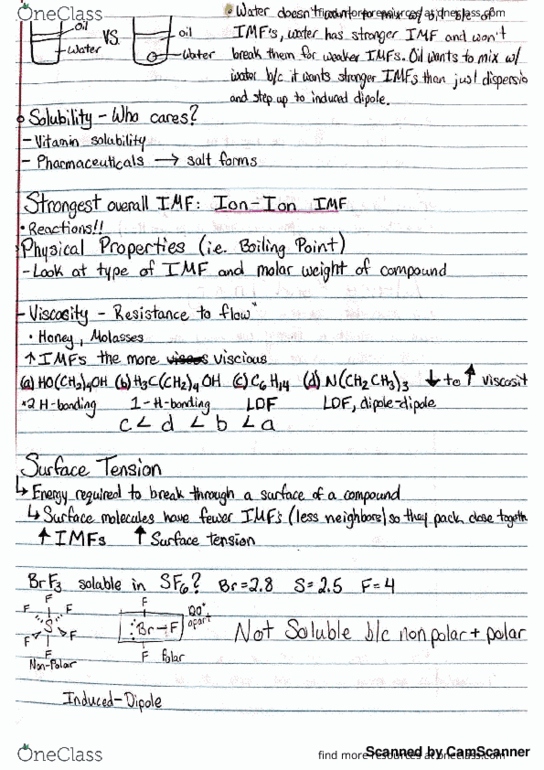 OneClass
Oil
Water
VS.
Oil
Water
• Water doesn't
IMF's, water has stronger IMF and won't
break them for weaker IMFs. Oil wants to mix w/
water b/c it wants stronger IMFs than just dispersio
and step up to induced dipole.
Solubility - Who cares?
- Vitamin solubility
- Pharmaceuticals → salt forms
Strongest overall IMF: Ion-Ion IMF
• Reactions!!
Physical Properties (i.e. Boiling Point)
- Look at type of IMF and molar weight of compound
- Viscosity - Resistance to flow*
• Honey, Molasses
↑ IMFs the more viscious
(a) HO(CH2)4OH (b) H3C(CH2)4OH (c) C6H14 (d) N(CH2CH3)3 ↓ to ↑ viscosit
*2 H-bonding 1-H-bonding LDF LDF, dipole-dipole
c < d < b < a
Surface Tension
↳ Energy required to break through a surface of a compound
↳ Surface molecules have fewer IMF's (less neighbors) so they pack close togeth
↑ IMFs ↑ Surface tension
BrF3 soluable in SF6? Br=2.8 S=2.5 F=4
F
F F
S
F F
F
Non-Polar
F
:Br-F
F
90°
apart
Polar
Not Soluble b/c nonpolar + polar
Induced-Dipole
OneClass
find more resources at oneclass.com
Scanned by CamScanner